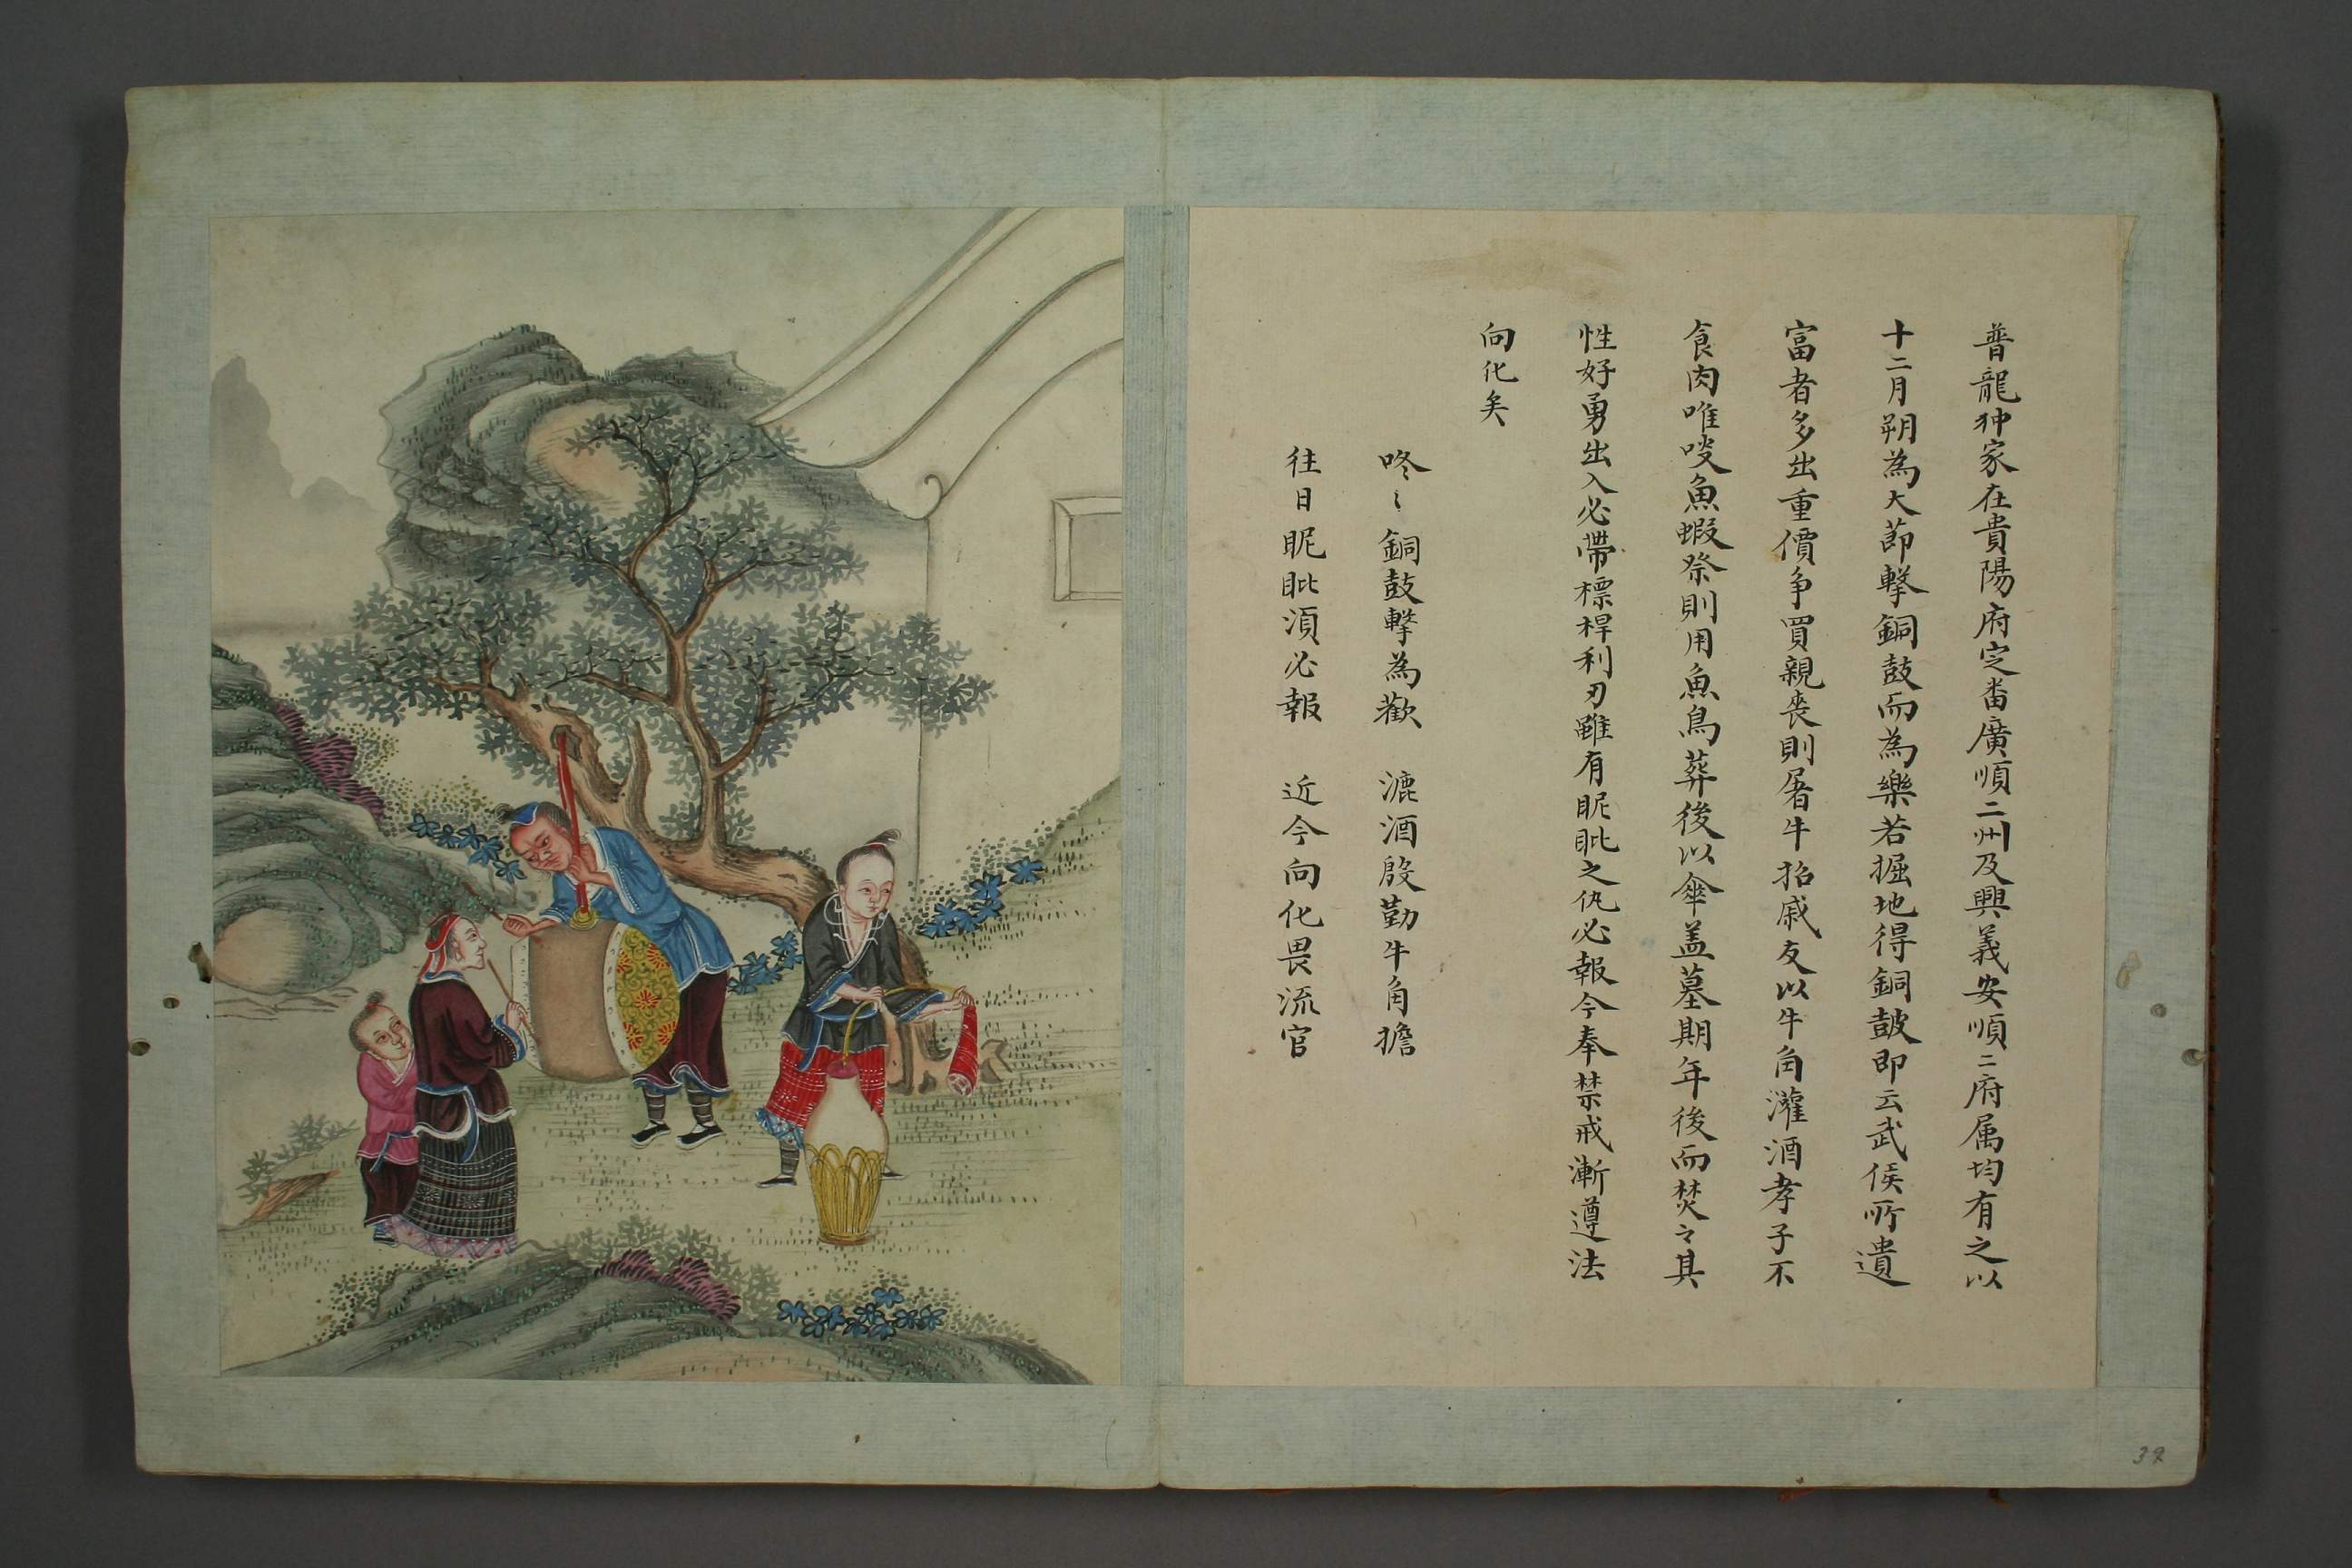 普龍狆家在貴陽府定番廣順二州及興義安順二府属均有之以
十二月朔為大節擊銅鼓而為樂若掘地得銅鼓即云武侯所遺
富者多出重價爭買親喪則屠牛招戚友以牛角灌酒孝子不
食肉唯啖魚蝦祭則用魚鳥葬後以傘盖墓期年後而焚々其
性好勇出入必帶標桿利刃雖有眤眦之仇必報今奉禁戒漸遵法
向化矣
咚〻銅鼓擊為歡 漉酒殷勤牛角擔
往日眤眦湏必報 近今向化畏流官
39